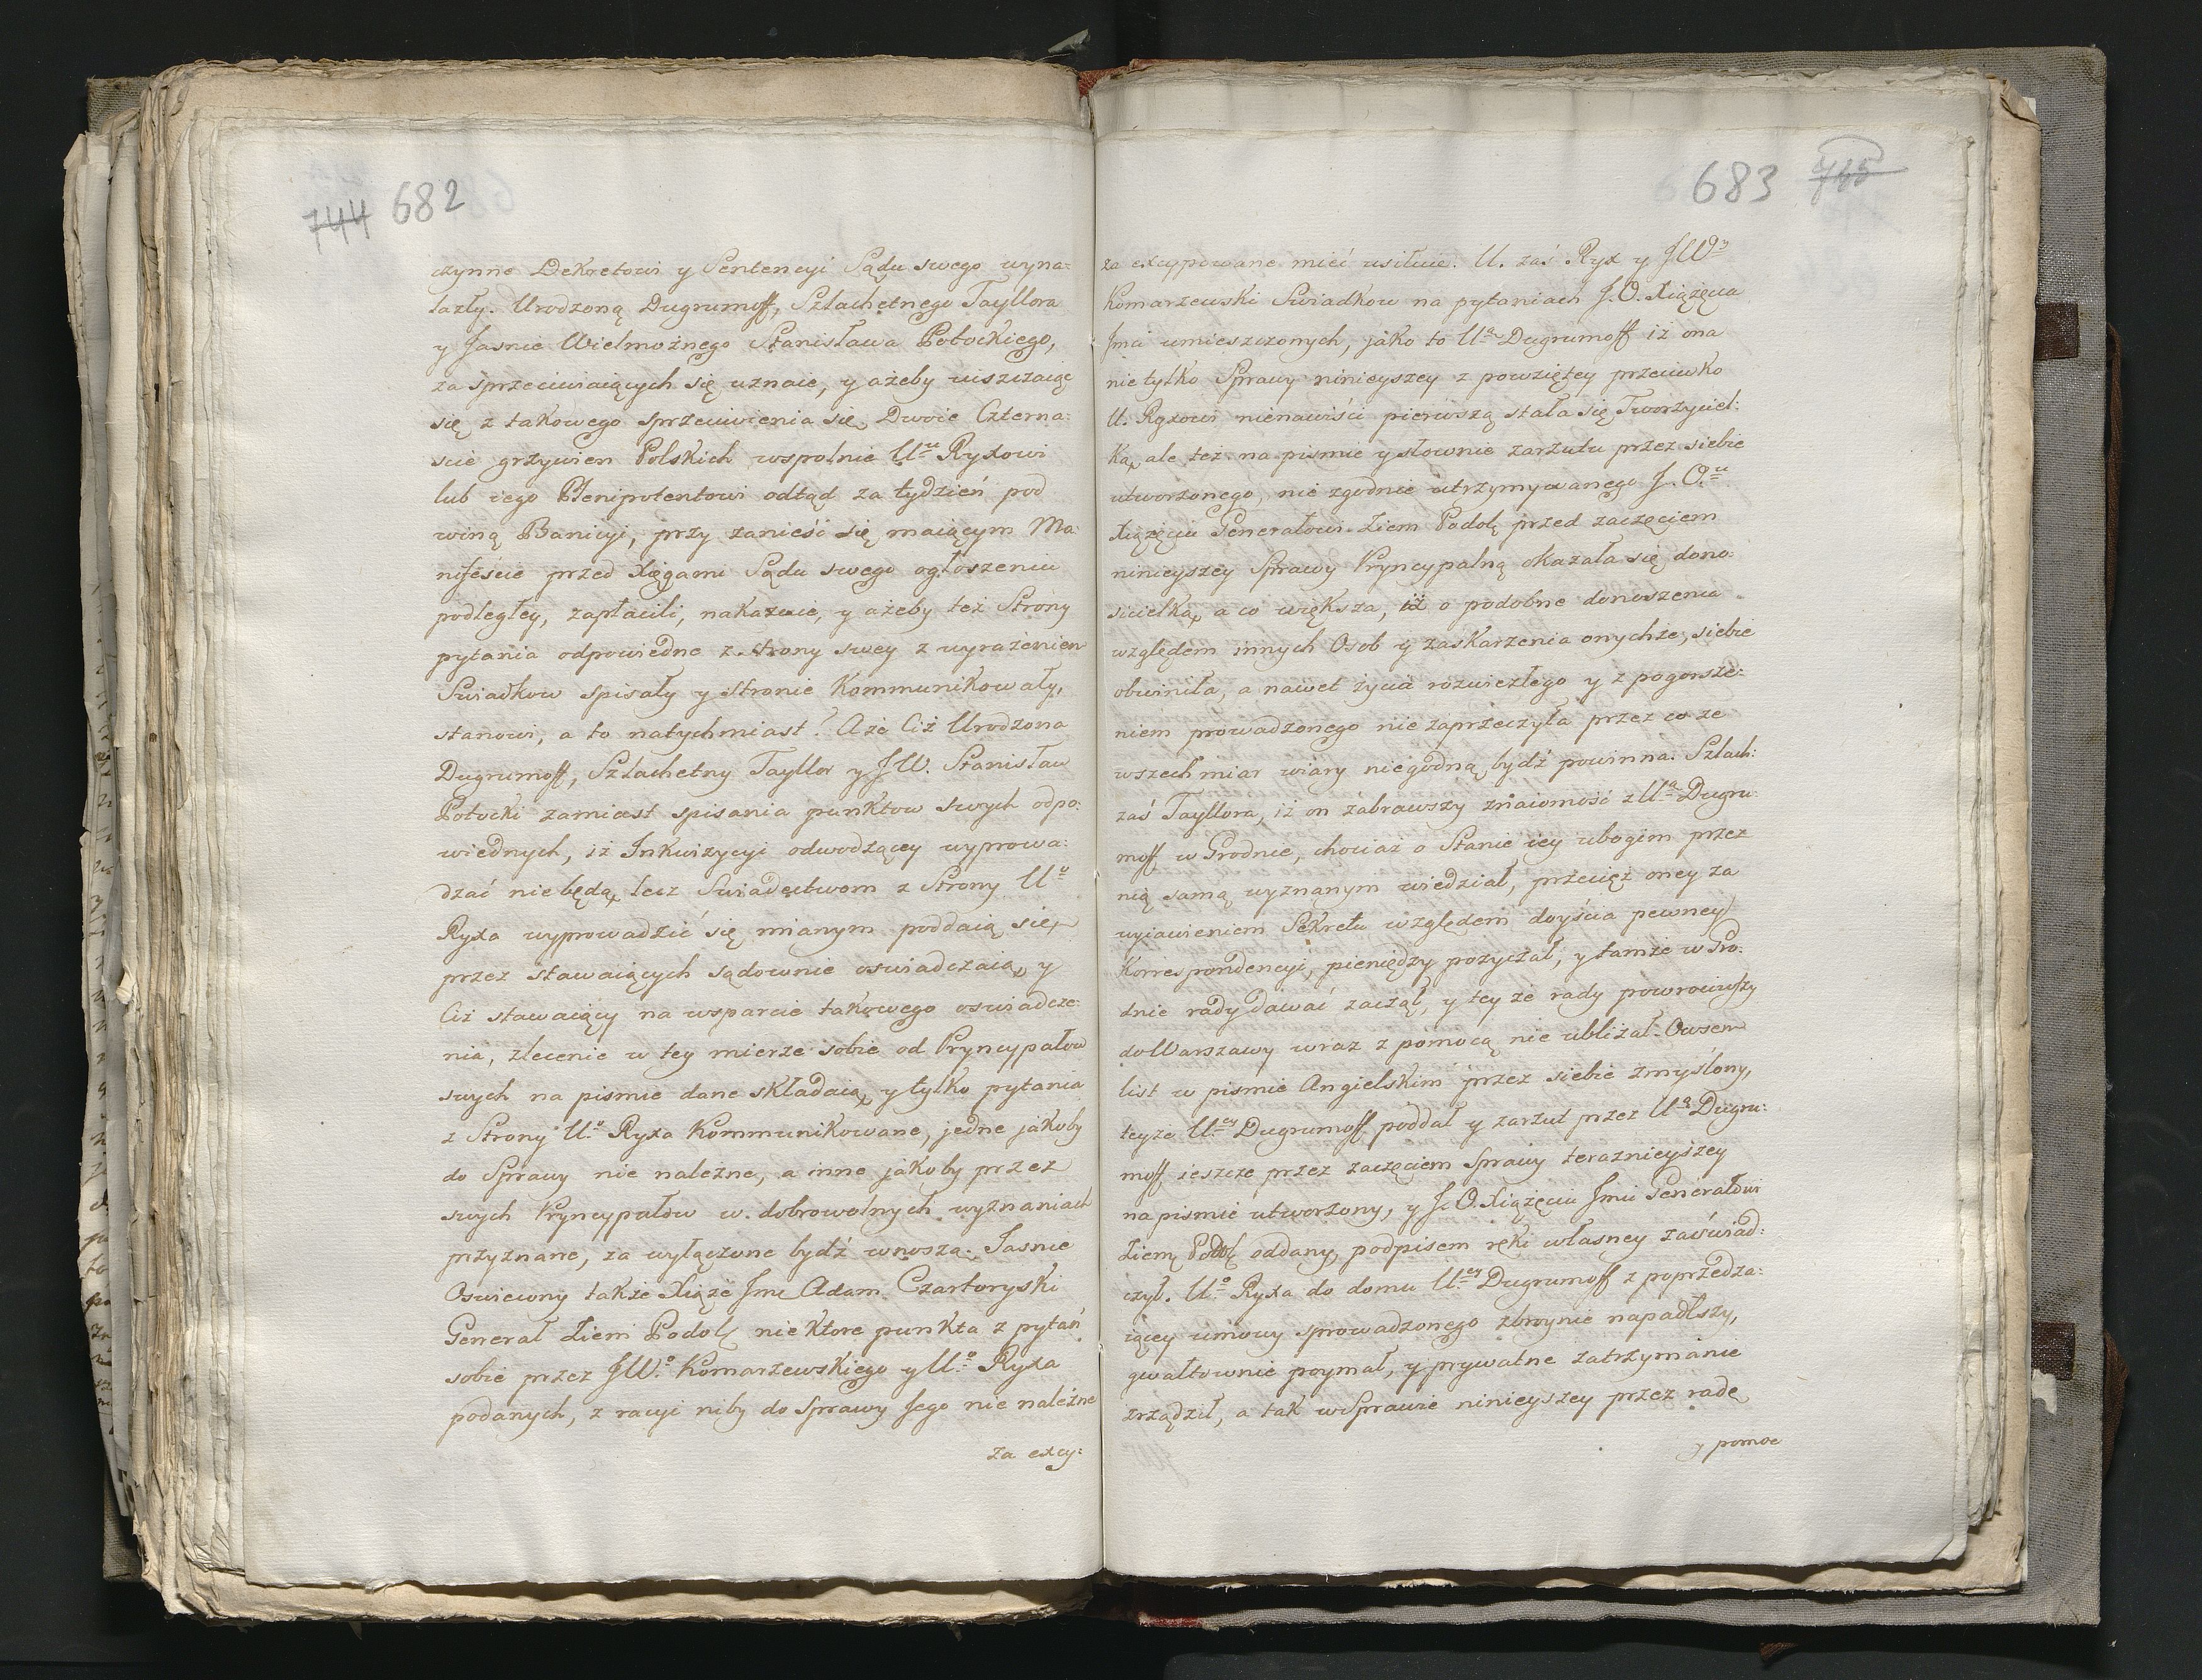 744 682
czynne Dekretowi y Sentencyi Sądu swego wyna:
lazły. Urodzoną Dugrumoff, Szlachetnego Tayllora
y Jasnie Wielmożnego Stanisława Potockiego,
za sprzeciwiaiących się uznaie, y ażeby uiszczaiąc
się z takowego sprzeciwienia się, Dwoie Czterna:
scie grzywien Polskich wspolnie U.u Ryxowi
lub iego Plenipotentowi odtąd za tydzień pod
winą Banicyi, przy zanieść się maiącym Ma:
nifeście przed Xięgami Sądu swego ogłoszeniu
podległey, zapłacili, nakazuie, y ażeby też Strony
pytania odpowiedne z strony swey z wyrażeniem
Swiadkow spisały y stronie Kommunikowały,
stanowi, a to natychmiast. A że Ciż Urodzona
Dugrumoff, Szlachetny Tayllor y J W. Stanisław
Potocki zamiast spisania punktow swych odpo:
wiednych, iż Inkwizycyi odwodzącey wyprowa:
dzać nie będą, lecz Swiadectwom z Strony U.o
Ryxa wyprowadzić się mianym poddaią się,
przez stawaiących sądownie oswiadczaią, y
Ciż stawaiący na wsparcie takowego oswiadcze:
nia, zlecenie w tey mierze sobie od Pryncypałow
swych na pismie dane składaią, y tylko pytania
z Strony U.o Ryxa Kommunikowane, jedne jakoby
do Sprawy nie należne, a inne jakoby przez
swych Pryncypałow w dobrowolnych wyznaniach
przyznane, za wyłączone bydź wnoszą. Jasnie
Oswiecony także Xiąże Jmć Adam Czartoryski
Generał Ziem Podol niektore punkta z pytań
sobie przez J W.o Komarzewskiego y U.o Ryxa
podanych, z racyi niby do Sprawy Jego nie należne
za excy:
683 745
za excypowane mieć usiłuie. U. zaś Ryx y J W.y
Komarzewski Swiadkow na pytaniach J. O. Xiążęcia
Jmci umieszczonych, jako to U.a Dugrumoff iż ona
nie tylko Sprawy ninieyszey z powziętey przeciwko
U. Ryxowi nienawiści pierwszą stała się Tworzyciel:
ką, ale też na pismie y słownie zarzutu przez siebie
utworzonego, nie zgodnie utrzymywanego J. O.u
Xiążęciu Generałowi Ziem Podol przed zaczęciem
ninieyszey Sprawy Pryncypalną okazała się dono:
sicielką, a co większa, iż o podobne donoszenia
względem innych Osob y zaskarzenia onychże, siebie
obwiniła, a nawet życia rozwiezłego y z pogorsze:
niem prowadzonego nie zaprzeczyła przez co ze
wszech miar wiary niegodną bydź powinna. Szlach:
zaś Tayllora, iż on zabrawszy znaiomość z U.ą Dugru:
moff w Grodnie, chociaż o Stanie iey ubogim przez
nią samą wyznanym wiedział, przecięż oney za
wyiawieniem Sekretu względem doyścia pewney
Korrespondencyi, pieniędzy pozyczał, y tamże w Gro:
dnie rady dawać zaczął, y tey że rady powrociwszy
do Warszawy wraz z pomocą nie ubliżał. Owsem
list w pismie Angielskim przez siebie zmyślony,
teyże U.ey Dugrumoff poddał y zarzut przez U.ą Dugru:
moff jeszcze przez zaczęciem Sprawy teraznieyszey
na pismie utworzony, y J. O. Xiążęciu Jmci Generałowi
Ziem Podol oddany, podpisem ręki własney zaświad:
czył. U.o Ryxa do domu U.ey Dugrumoff z poprzedza:
iącey umowy sprowadzonego zbroynie napadłszy,
gwałtownie poymał, y prywatne zatrzymanie
zrządził, a tak w Sprawie ninieyszey przez radę
y pomoc